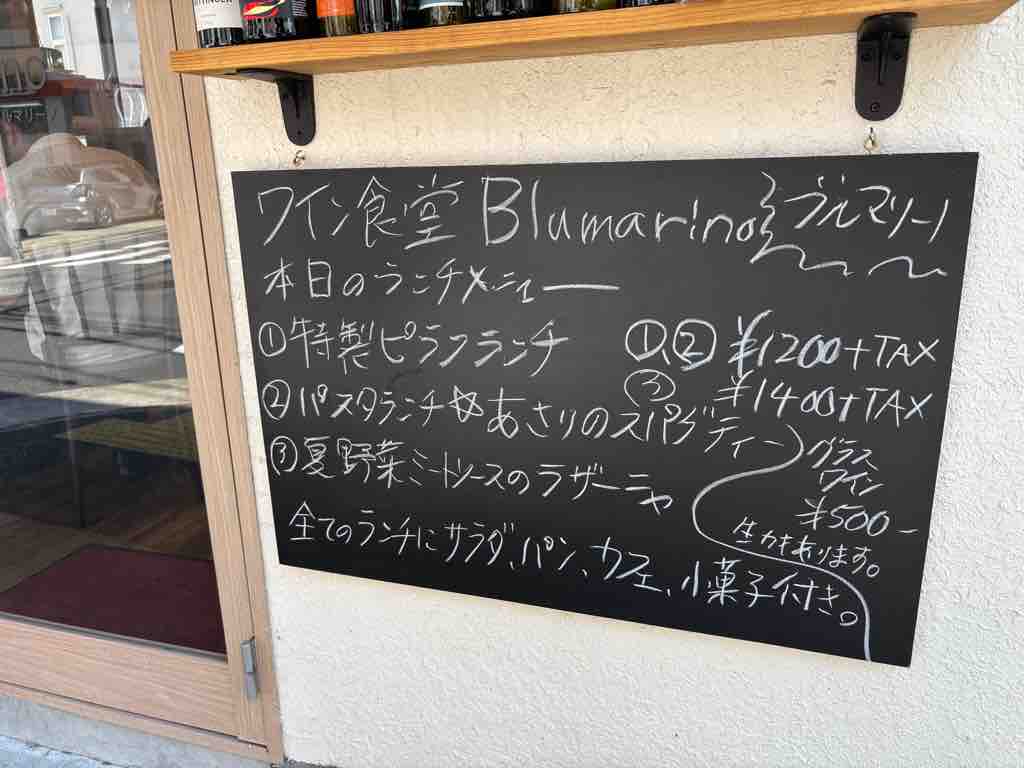 ワイン食堂 Blumarino ブルマリーノ
本日のランチメニュー
①特製ピラフランチ ①、② ¥1200+TAX
③ ¥1400+TAX
②パスタランチ☆あさりのスパゲティー
③夏野菜ミートソースのラザーニャ
グラス
ワイン
¥500-
生カキあります。
全てのランチにサラダ、パン、カフェ、小菓子付き。